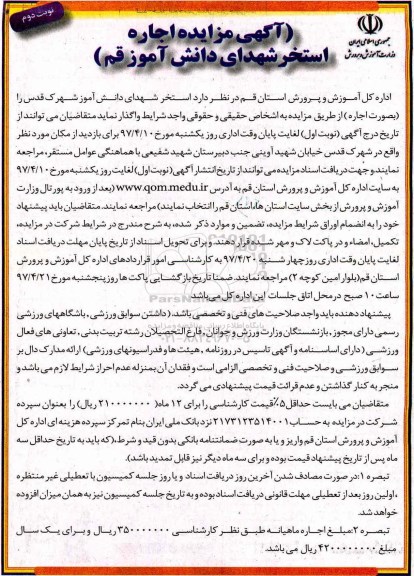 نوبت دوم
جمهوری اسلامی ایران
وزارت آموزش و پرورش
(آگهی مزایده اجاره
استخر شهدای دانش آموز قم)
اداره کل آموزش و پرورش استان قم در نظر دارد استخر شهدای دانش آموز شهرک قدس را
(بصورت اجاره) از طریق مزایده به اشخاص حقیقی و حقوقی واجد شرایط واگذار نماید متقاضیان می توانند از
تاریخ درج آگهی (نوبت اول) لغایت پایان وقت اداری روز یکشنبه مورخ ۹۷/۴/۱۰ برای بازدید از مکان مورد نظر
واقع در شهرک قدس خیابان شهید آوینی جنب دبیرستان شهید شفیعی با هماهنگی عوامل مستقر، مراجعه
نمایند و جهت دریافت اسناد مزایده می توانند از تاریخ انتشار آگهی (نوبت اول) لغایت روز یکشنبه مورخ ۹۷/۴/۱۰
به سایت اداره کل آموزش و پرورش استان قم به آدرس www.qom.medu.ir (بعد از ورود به پورتال وزارت
آموزش و پرورش از بخش سایت استان ها، استان قم را انتخاب نمایند) مراجعه نمایند. متقاضیان باید پیشنهاد
خود را به انضمام اوراق شرایط مزایده، تضمین و موارد ذکر شده، به شرح مندرج در شرایط شرکت در مزایده،
تکمیل، امضاء و در پاکت لاک و مهر شده قرار دهند. و برای تحویل اسناد از تاریخ پایان مهلت دریافت اسناد
لغایت پایان وقت اداری روز چهارشنبه ۹۷/۴/۲۰ به کارشناسی امور قراردادهای اداره کل آموزش و پرورش
استان قم (بلوار امین کوچه ۲) مراجعه نمایند. ضمنا تاریخ بازگشایی پاکت ها روز پنجشنبه مورخ ۹۷/۴/۲۱
ساعت ۱۰ صبح در محل اتاق جلسات این اداره کل می باشد.
پیشنهاد دهنده باید واجد صلاحیت های فنی و تخصصی باشد. (داشتن سوابق ورزشی، باشگاههای ورزشی
رسمی دارای مجوز، بازنشستگان وزارت ورزش و جوانان، فارغ التحصیلان رشته تربیت بدنی، تعاونی های فعال
ورزشی (دارای اساسنامه و آگهی تاسیس در روزنامه، هیئت ها و فدراسیونهای ورزشی) ارائه مدارک دال بر
سوابق ورزشی و صلاحیت فنی و تخصصی الزامی است و فقدان آن بمنزله عدم احراز شرایط لازم می باشد و
منجر به کنار گذاشتن و عدم قرائت قیمت پیشنهادی می گردد.
متقاضیان می بایست حداقل ۵٪ قیمت کارشناسی را برای ۱۲ ماه( ۲۱۰۰۰۰۰۰۰ ریال) را بعنوان سپرده
شرکت در مزایده به حساب ۲۱۷۳۱۲۳۵۱۴۰۰۱ نزد بانک ملی ایران بنام تمرکز سپرده هزینه ای اداره کل
آموزش و پرورش استان قم واریز و یا به صورت ضمانتنامه بانکی بدون قید و شرط، (که باید به تاریخ حداقل سه
ماه پس از تاریخ پیشنهاد قیمت بوده و برای سه ماه دیگر نیز قابل تمدید باشد).
تبصره ۱: در صورت مصادف شدن آخرین روز دریافت اسناد و یا روز جلسه کمیسیون با تعطیلی غیر منتظره
، اولین روز بعد از تعطیلی مهلت قانونی دریافت اسناد بوده و به تاریخ جلسه کمیسیون نیز به همان میزان افزوده
خواهد شد.
تبصره ۲: مبلغ اجاره ماهیانه طبق نظر کارشناسی ۳۵۰۰۰۰۰۰۰ ریال و برای یک سال
مبلغ ۴۲۰۰۰۰۰۰۰۰ ریال می باشد.